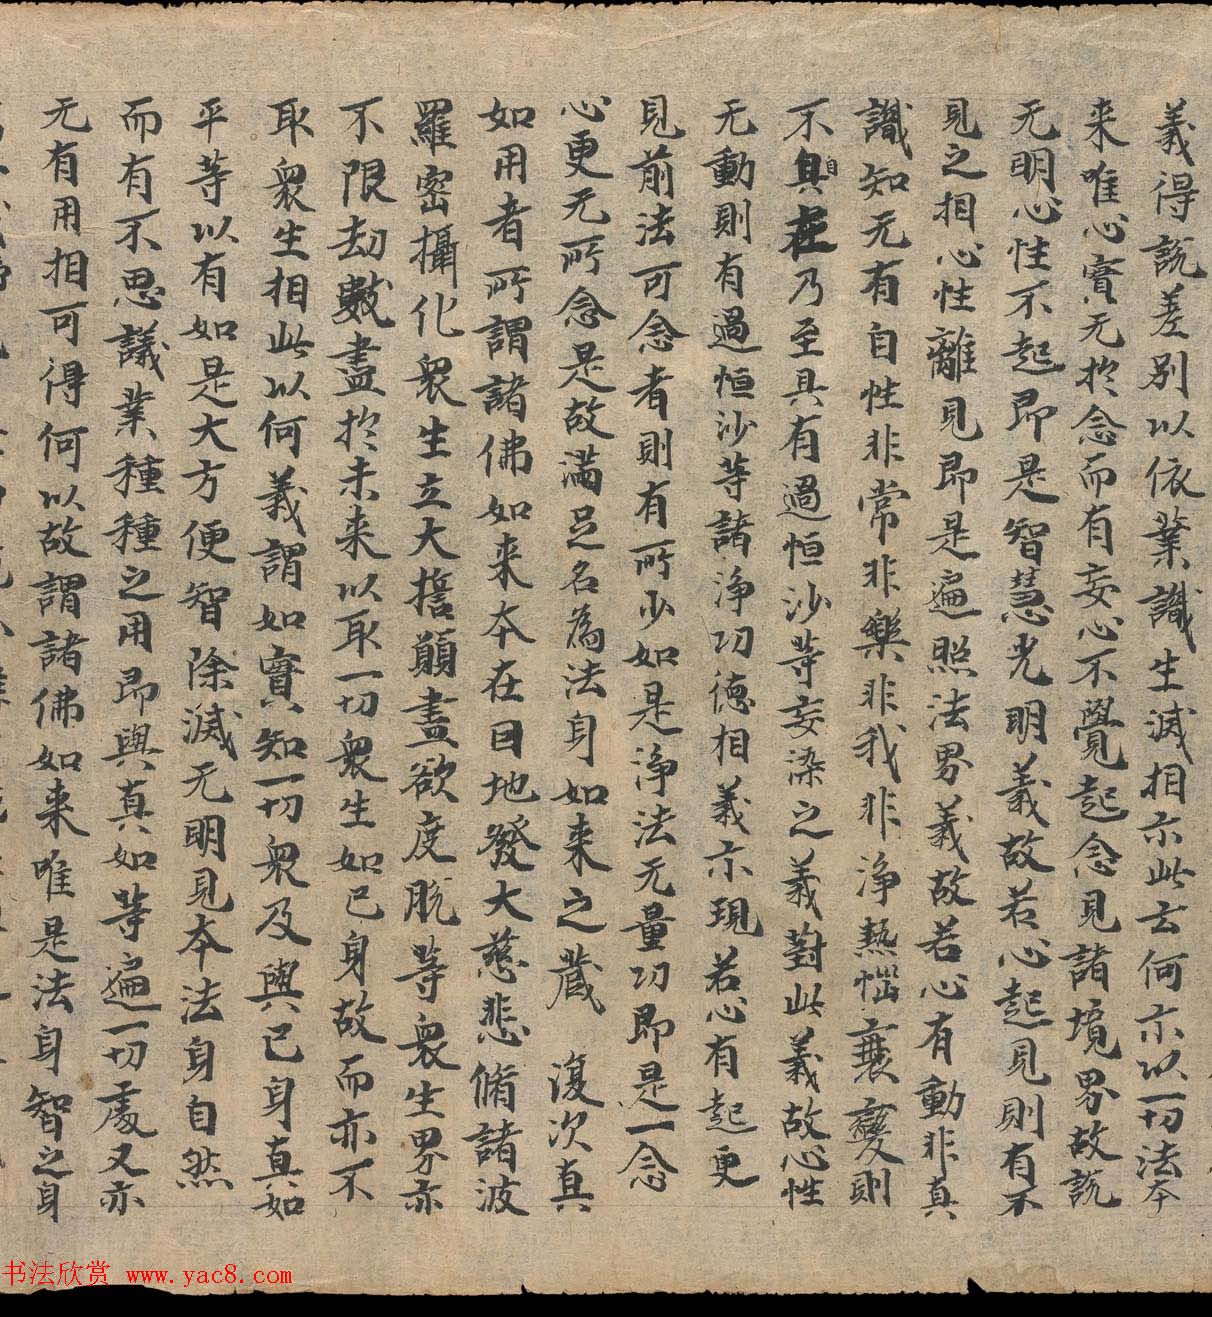 義得說差別以依業識生滅相示此云何示以一切法本
来唯心實无於念而有妄心不覺起念見諸境界故說
无明心性不起即是智慧光明義故若心起見則有不
見之相心性離見即是遍照法界義故若心有動非真
識知无有自性非常非樂非我非淨熱惱衰變則
不自在乃至具有過恒沙等妄染之義對此義故心性
无動則有過恒沙等諸淨功德相義示現若心有起更
見前法可念者則有所少如是淨法无量功即是一念
心更无所念是故滿足名為法身如来之藏 復次真
如用者所謂諸佛如来本在因地發大慈悲脩諸波
羅蜜攝化衆生立大擔願盡欲度脫等衆生界亦
不限劫數盡於未来以取一切衆生如己身故而亦不
取衆生相此以何義謂如實知一切衆及與己身真如
平等以有如是大方便智除滅无明見本法身自然
而有不思議業種種之用即與真如等遍一切處又亦
无有用相可得何以故謂諸佛如来唯是法身智之身
书法欣赏 www.yac8.com